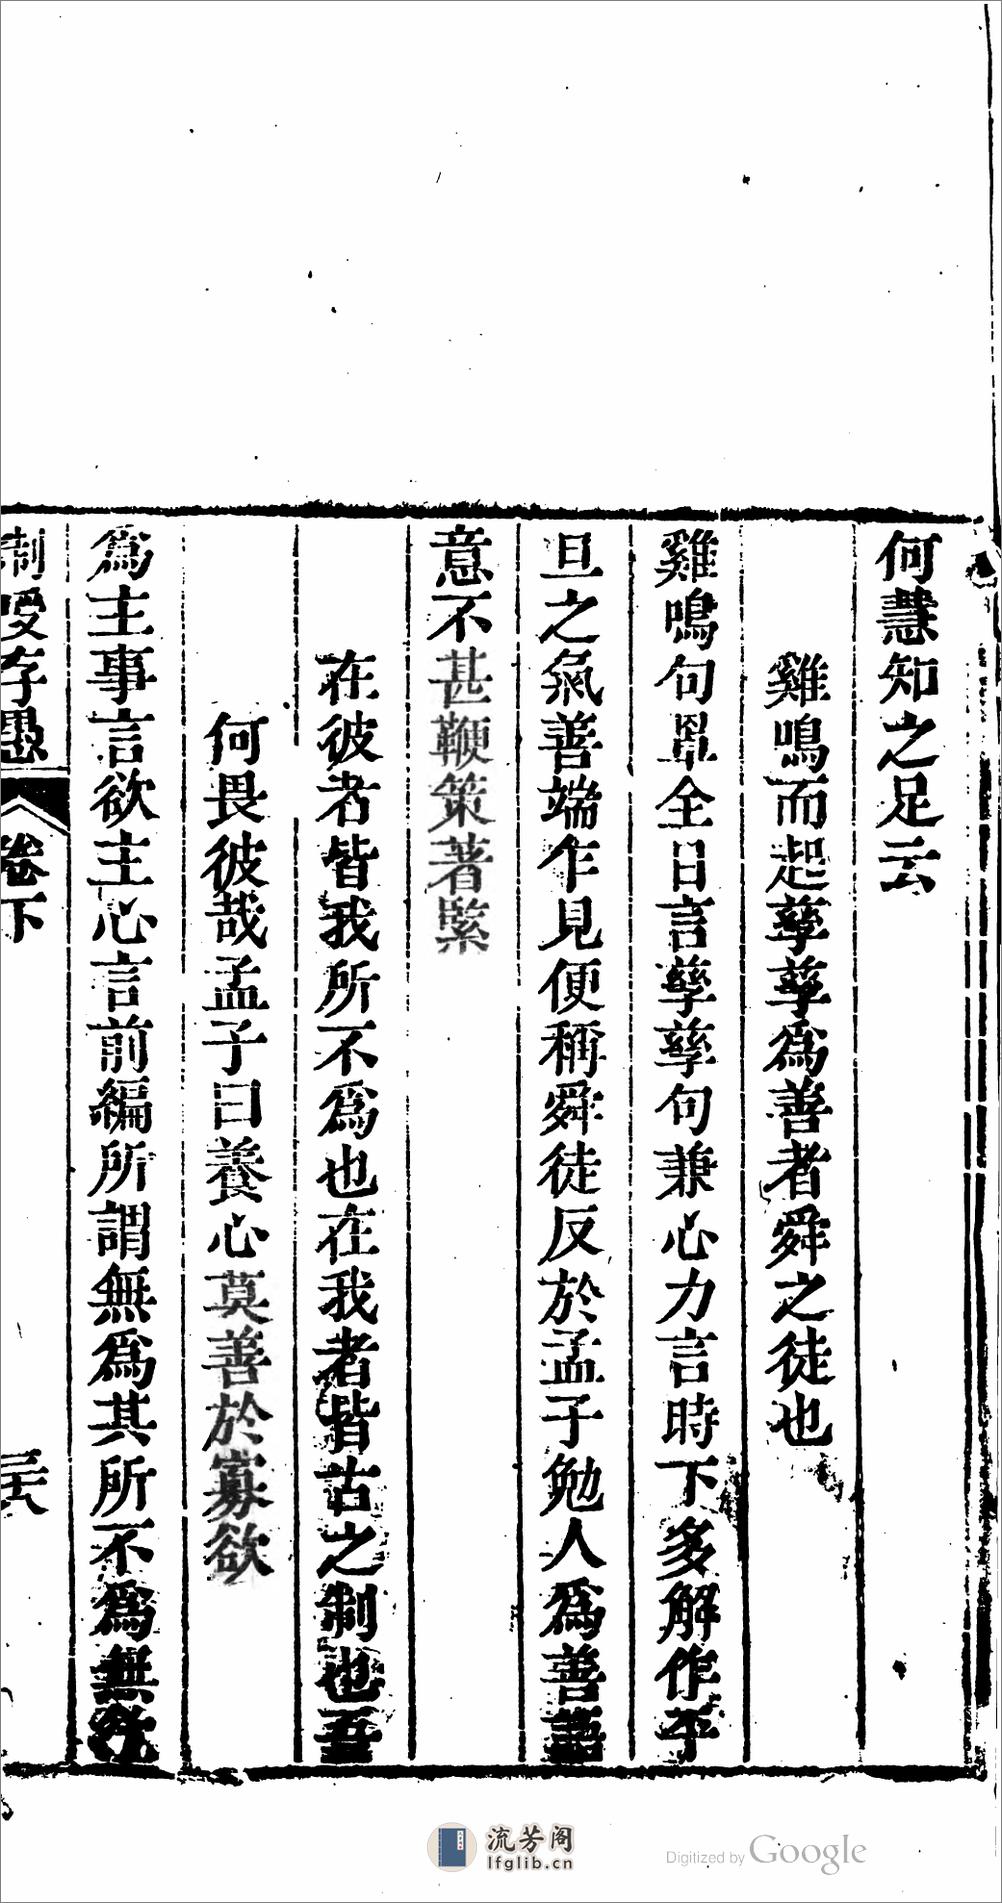 何慧知之足云
雞鳴而起孳孳爲善者舜之徒也
雞鳴句累全日言孳孳句兼心力言時下多解作平
旦之氣善端乍見便稱舜徒反於孟子勉人爲善語
意不甚鞭策著緊
在彼者皆我所不爲也在我者皆古之制也吾
何畏彼哉孟子曰養心莫善於寡欲
爲主事言欲主心言前編所謂無爲其所不爲無欲
制嬡存愚 卷下
流芳阁
lfglib.cn
Digitized by Google